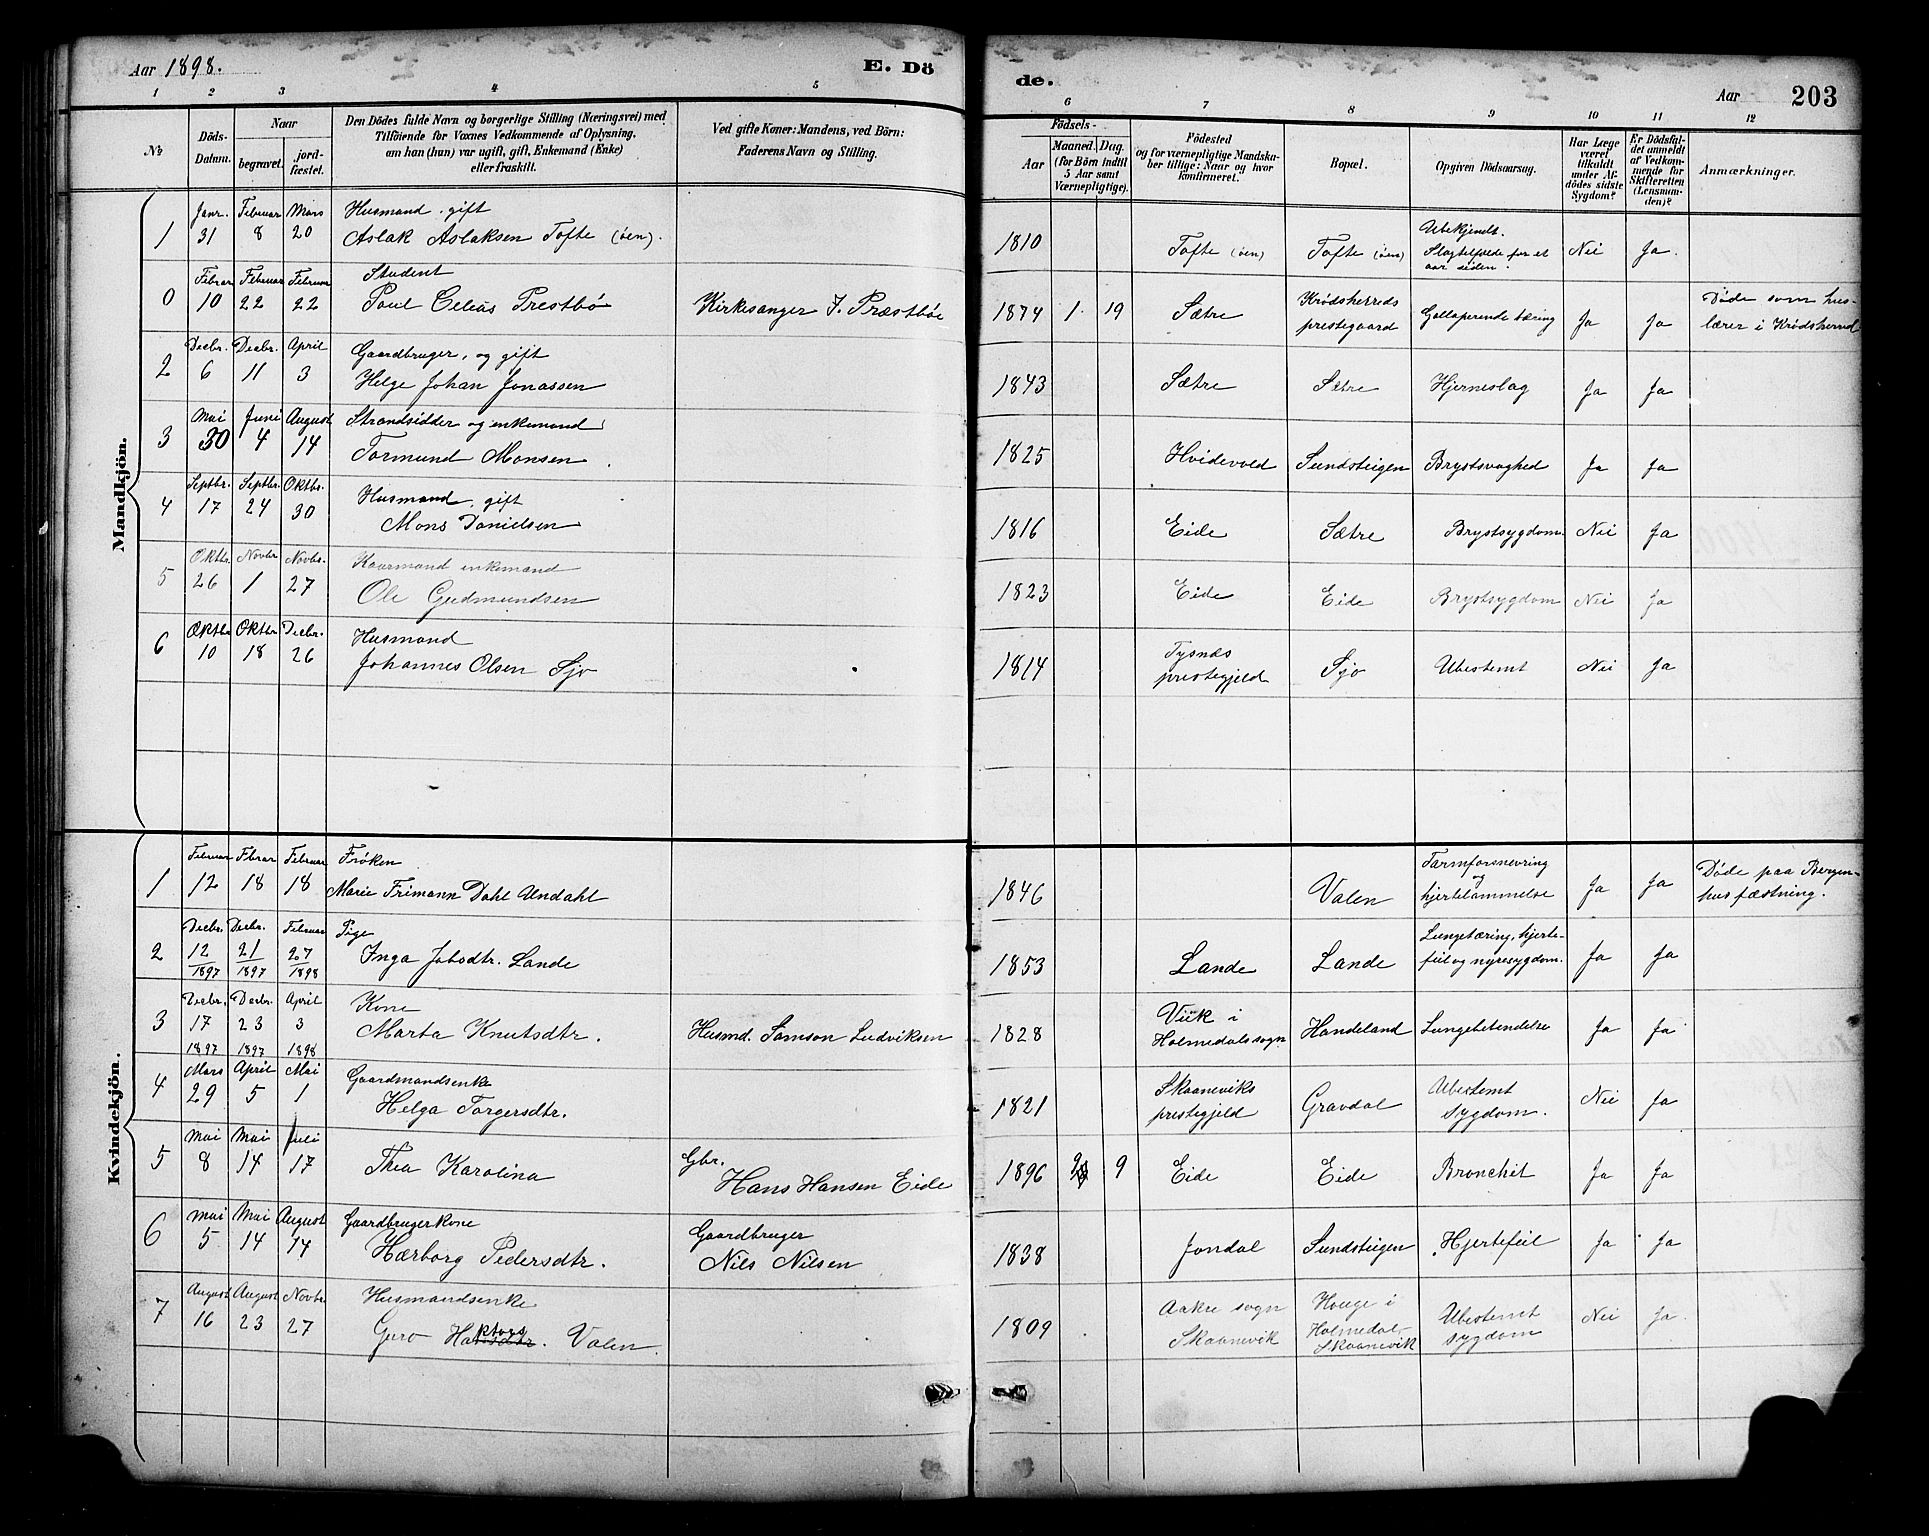 Aar 1898.
E. Dö
de.
Aar
203
1 2 3 4 5
6 7 8 9 10 11 12
№
Döds-Datum.
Naar
begravet.
jord-fæstet.
Den Dödes fulde Navn og borgerlige Stilling (Næringsvei) med
Tilföiende for Voxnes Vedkommende af Oplysning,
om han (hun) var ugift, gift, Enkemand (Enke)
eller fraskilt.
Ved gifte Koner: Mandens, ved Börn:
Faderens Navn og Stilling.
Födsels-
Aar
Maaned. Dag.
(for Börn indtil
5 Aar samt
Værnepligtige).
Födested
og for værnepligtige Mandska-
ber tillige: Naar og hvor
konfirmeret.
Bopæl.
Opgiven Dödsaarsag.
Har Læge
været
tilkaldt
under Af-
dödes sidste
Sygdom?
Er Dödsfal-
det anmeldt
af Vedkom-
mende for
Skifteretten
(Lensman-
den)?
Anmærkninger.
Mandkjön.
Janr. Februar Mars Husmand, gift
1 31 8 20 Aslak Aslaksen Tofte (öen). 1810 Tofte (öen) Tofte (öen) Ubekjendt. Slagtilfælde for et aar siden. Nei Ja.
Febrar Februar Februar Student
0 10 22 22 Paul Celius Prestbø Kirkesanger J. Præstbøe 1874 1. 19 Sætre Krødsherreds prestegaard Galloperende tæring Ja Ja Døde som hus-lærer i Krødsherred
Decbr. Decbr. April Gaardbruger, og gift
2 6 11 3 Helge Johan Jonassen 1843 Sætre Sætre Hjerneslag Ja Ja
Mai Juni August Strandsidder og enkemand
3 30 4 14 Tormund Monsen 1825 Hvidevold Sundsteigen Brystsvaghed Ja Ja
Septbr. Septbr. Oktbr. Husmand, gift
4 17 24 30 Mons Danielsen 1816 Eide Sætre Brystsygdom. Nei Ja
Oktbr. Novbr Novbr. Kaarmand enkemand
5 26 1 27 Ole Gudmundsen 1823 Eide Eide Brystsygdom Nei Ja
Oktbr Oktbr Decbr. Husmand
6 10 18 26 Johannes Olsen Sjo 1814 Tysnæs prestegjeld Sjo Ubestemt Nei Ja
Kvindekjön.
Februar Fbrar Februar Frøken
1 12 18 18 Marie Frimann Dahl Undahl 1846 Valen Tarmforsnevring og hjertelammelse Ja Ja Døde paa Bergen-hus fæstning.
Decbr. Decbr. Februar Pige
2 12/1897 21/1897 27/1898 Inga Jabodtr. Lande 1853 Lande Lande Lungetæring, hjerte-feil og nyresygdom. Ja Ja
Decbr. Decbr. April Kone
3 17 1897 23 1897 3 1898 Marta Knutsdtr. Husmd. Samson Ludviksen 1828 Viik i Holmedals sogn Handeland Lungebetendelse Ja Ja
Mars April Mai Gaardmandsenke
4 29 5 1 Helga Torgersdtr. 1821 Skaaneviks prestegjeld Gravdal Ubestemt sygdom. Nei Ja
Mai Mai Juli
5 8 14 17 Thea Karolina Gbr. Hans Hansen Eide 1896 2 9 Eide Eide Bronchit Ja Ja
Mai Mai August Gaardbrugerkone
6 5 14 14 Hærborg Pedersdtr. Gaardbruger Nils Nilsen 1838 Jondal Sundsteigen Hjertefeil Ja Ja
August August Novbr Husmandsenke
7 16 23 27 Guro Valen. 1809 Aakre sogn Skaanevik Houge i Holmedal Skaanevik Ubestemt sygdom Nei Ja.